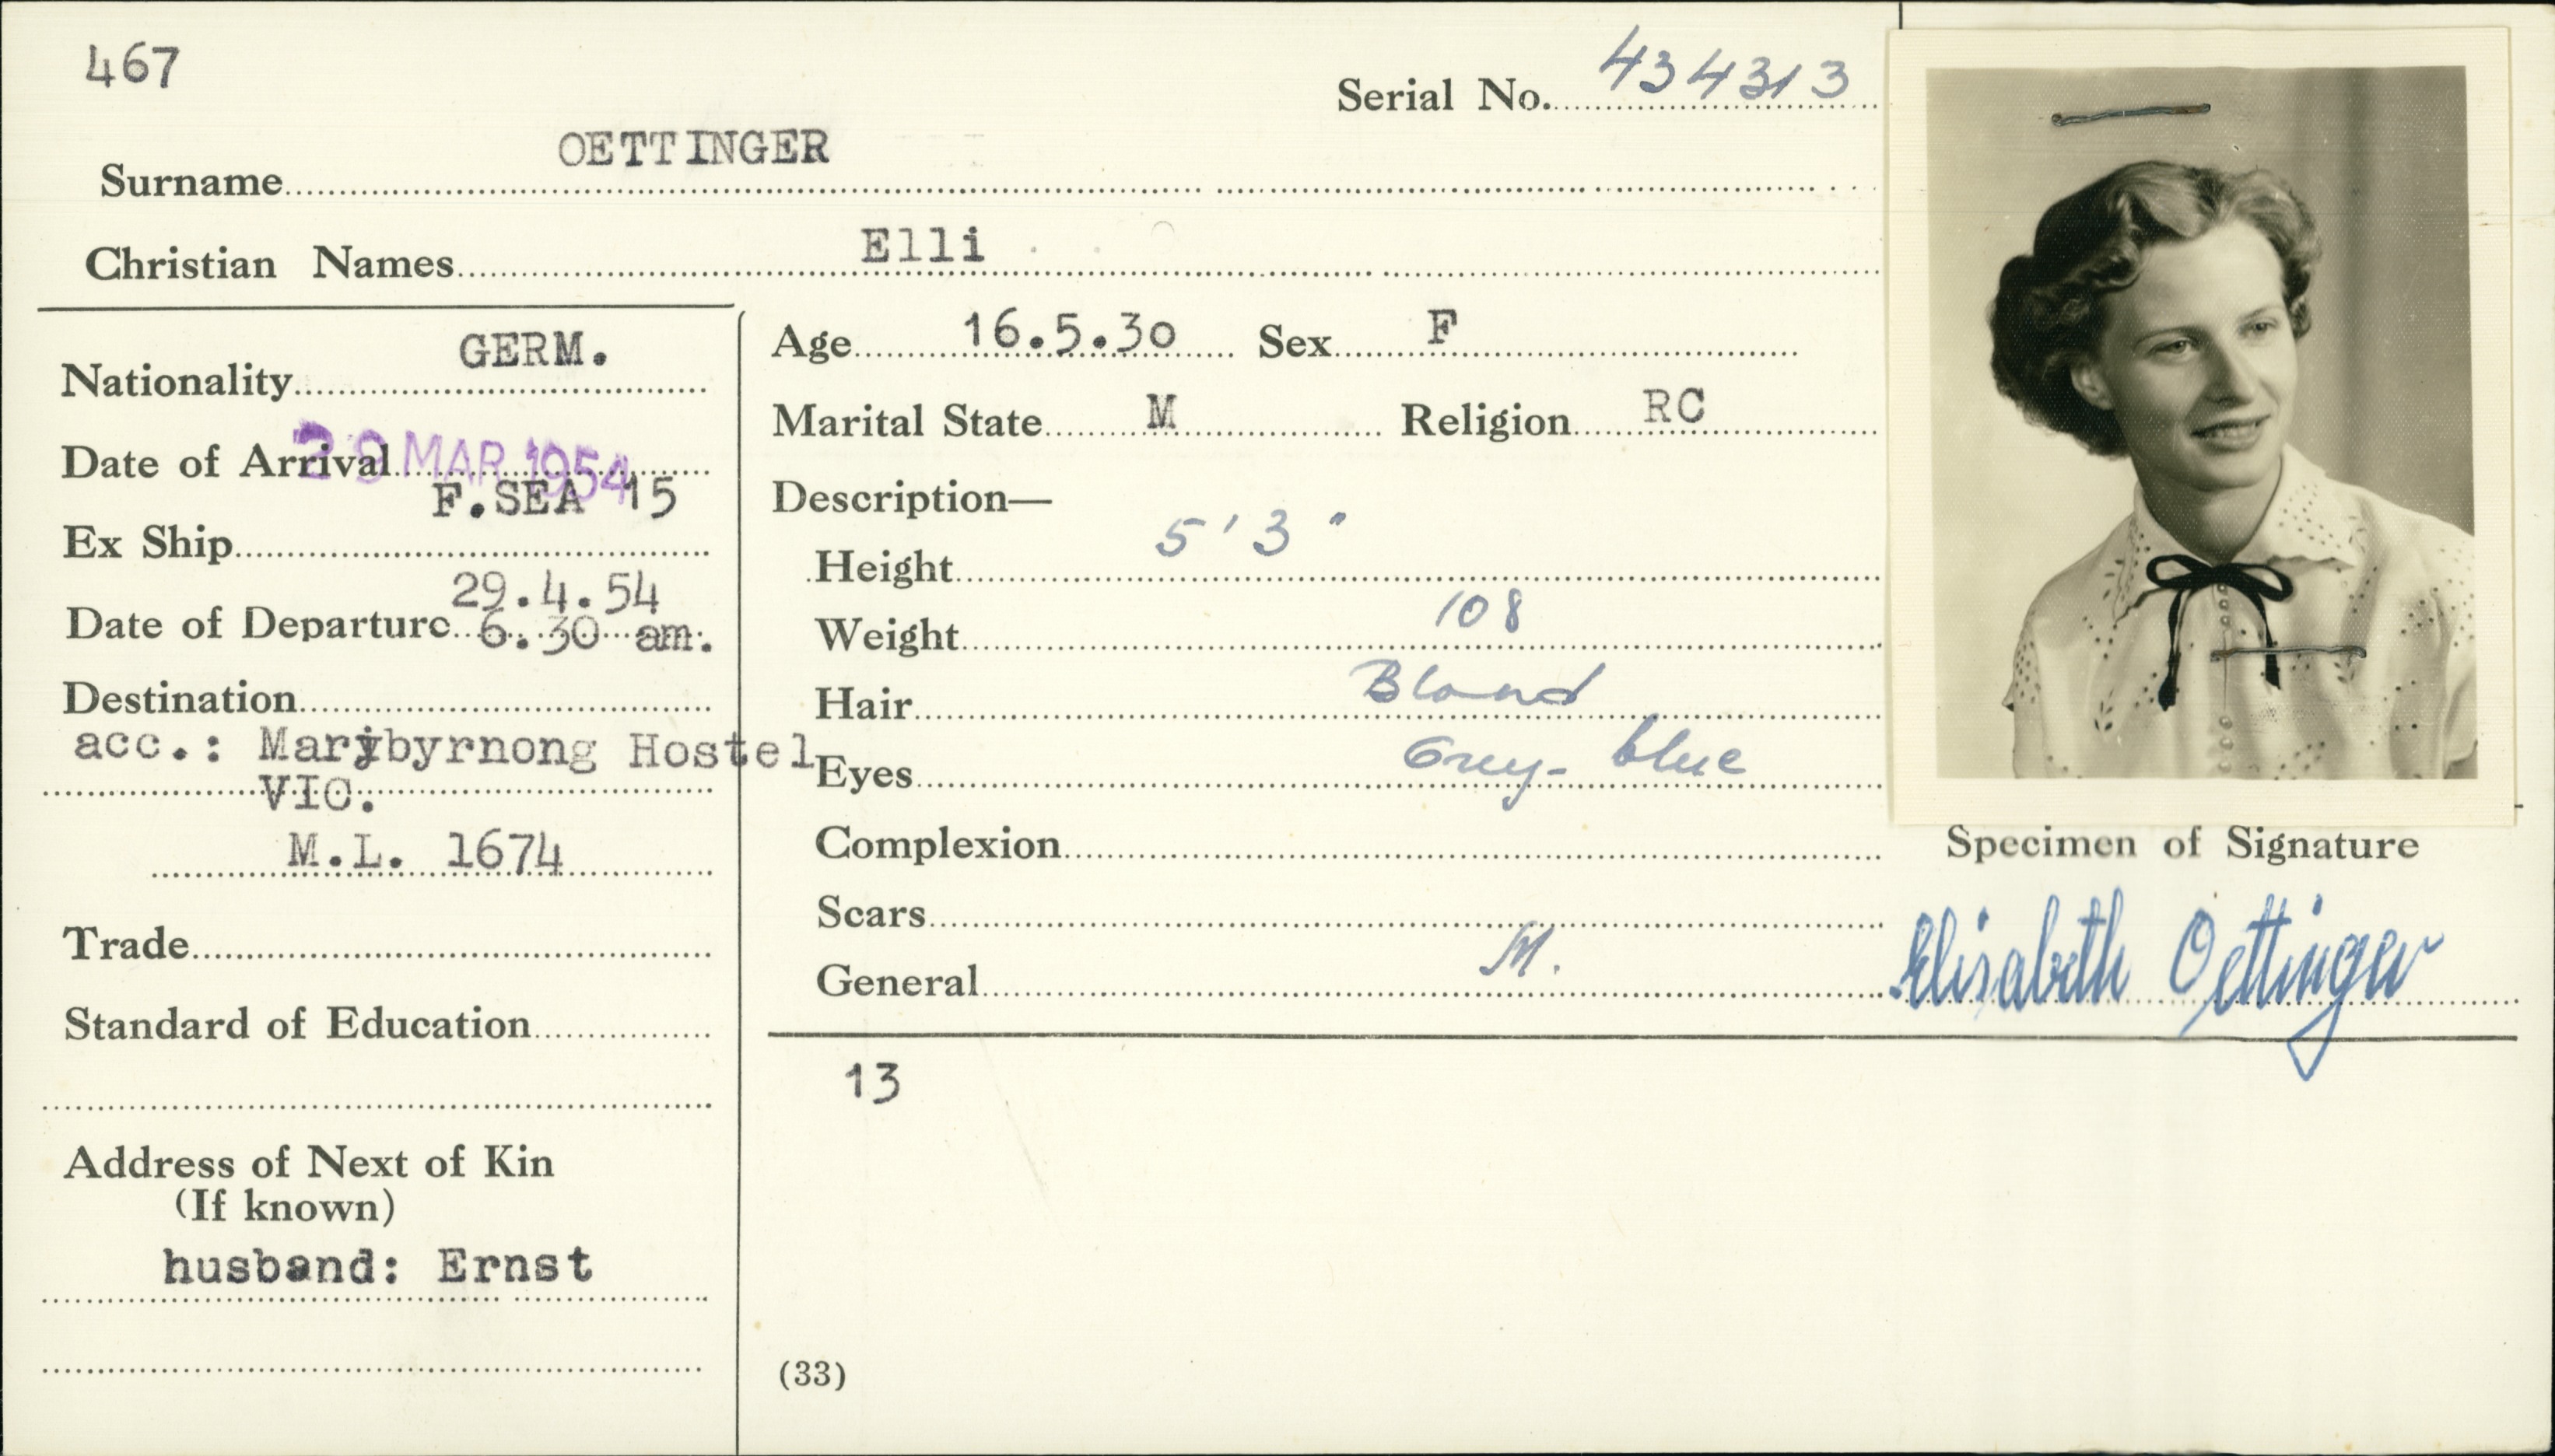 467
Serial No. 434313
Surname OETTINGER
Christian Names Elli
Nationality GERM.
Date of Arrival 29 MAR 1954
Ex Ship F.SEA 15
Date of Departure 29.4.54
6.30 am.
Destination
acc.: Maribyrnong Hostel
VIC.
M.L. 1674
Trade
Standard of Education
Address of Next of Kin
(If known)
husband: Ernst
Age 16.5.30 Sex F
Marital State M Religion RC
Description—
Height 5'3"
Weight 108
Hair Blond
Eyes Grey-blue
Complexion
Scars
General M.
13
(33)
Specimen of Signature
Elisabeth Oettinger